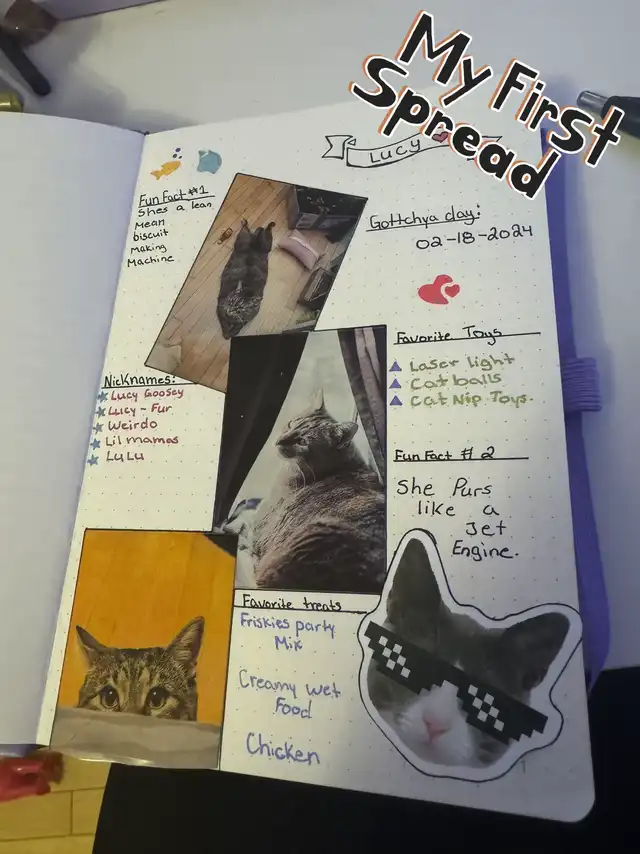 My First
Spread
Lucy
Fun Fact #1
Shes a lean
mean
biscuit
making
Machine
Gottchya day:
02-18-2024
Nicknames:
Lucy Goosey
Lucy-Fur
Weirdo
Lil mamas
LuLu
Favorite Toys
Laser light
Cat balls
Cat Nip Toys.
Fun Fact # 2
She Purs
like a
Jet
Engine.
Favorite treats
Friskies party
Mix
Creamy wet
Food
Chicken